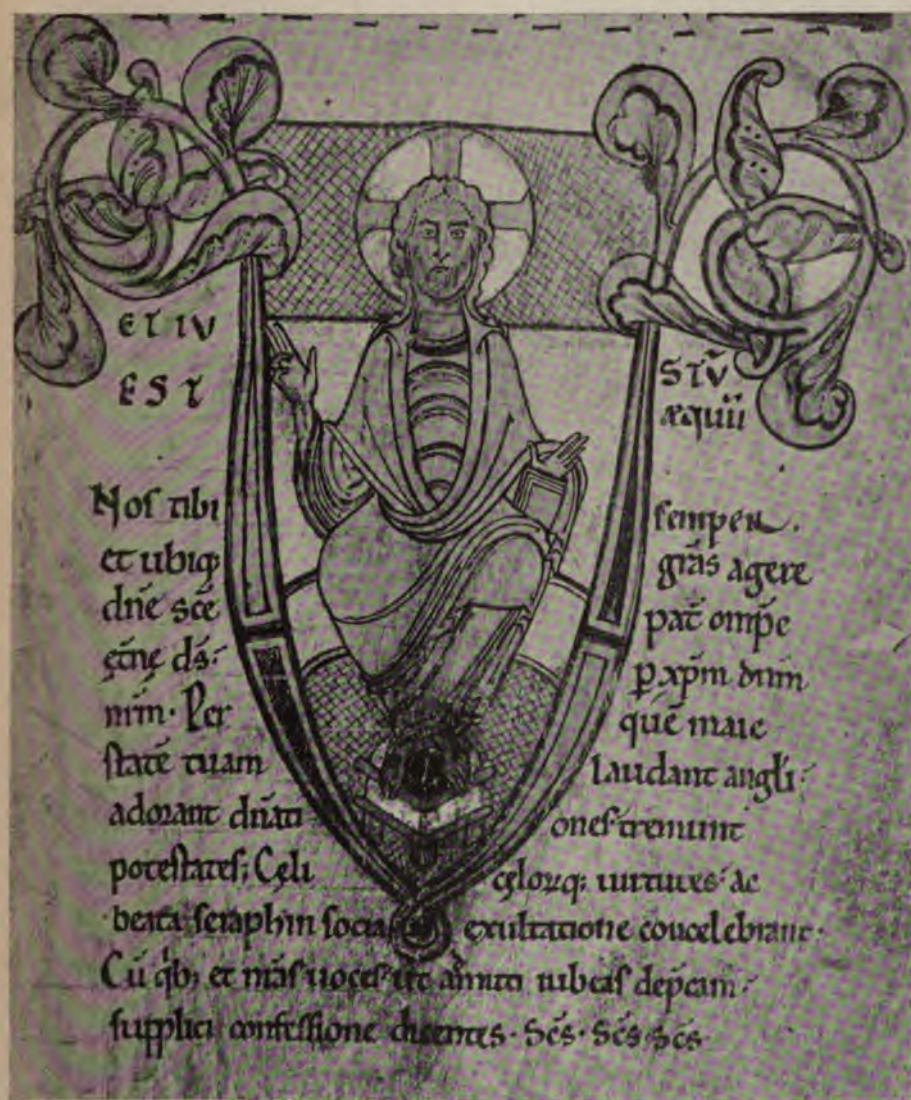 ET IV STŪ
EST æquū
Nos tibi semper.
et ubiq; gr̄as agere
dn̄e sc̄e pat̄ omp̄e
ęt̄ne ds̄. p xp̄m dnm
nr̄m. Per quē maie
statē tuam laudant angl̄i.
adorant dn̄ati ones tremunt
potestates; Cęli cęlorq; uirtutes ac
beata seraphin socia exultatione concelebrant.
Cū q̄b; et nr̄as uoces ut admitti iubeas dep̄cam.
supplici confessione dicentes. Sc̄s. Sc̄s. Sc̄s